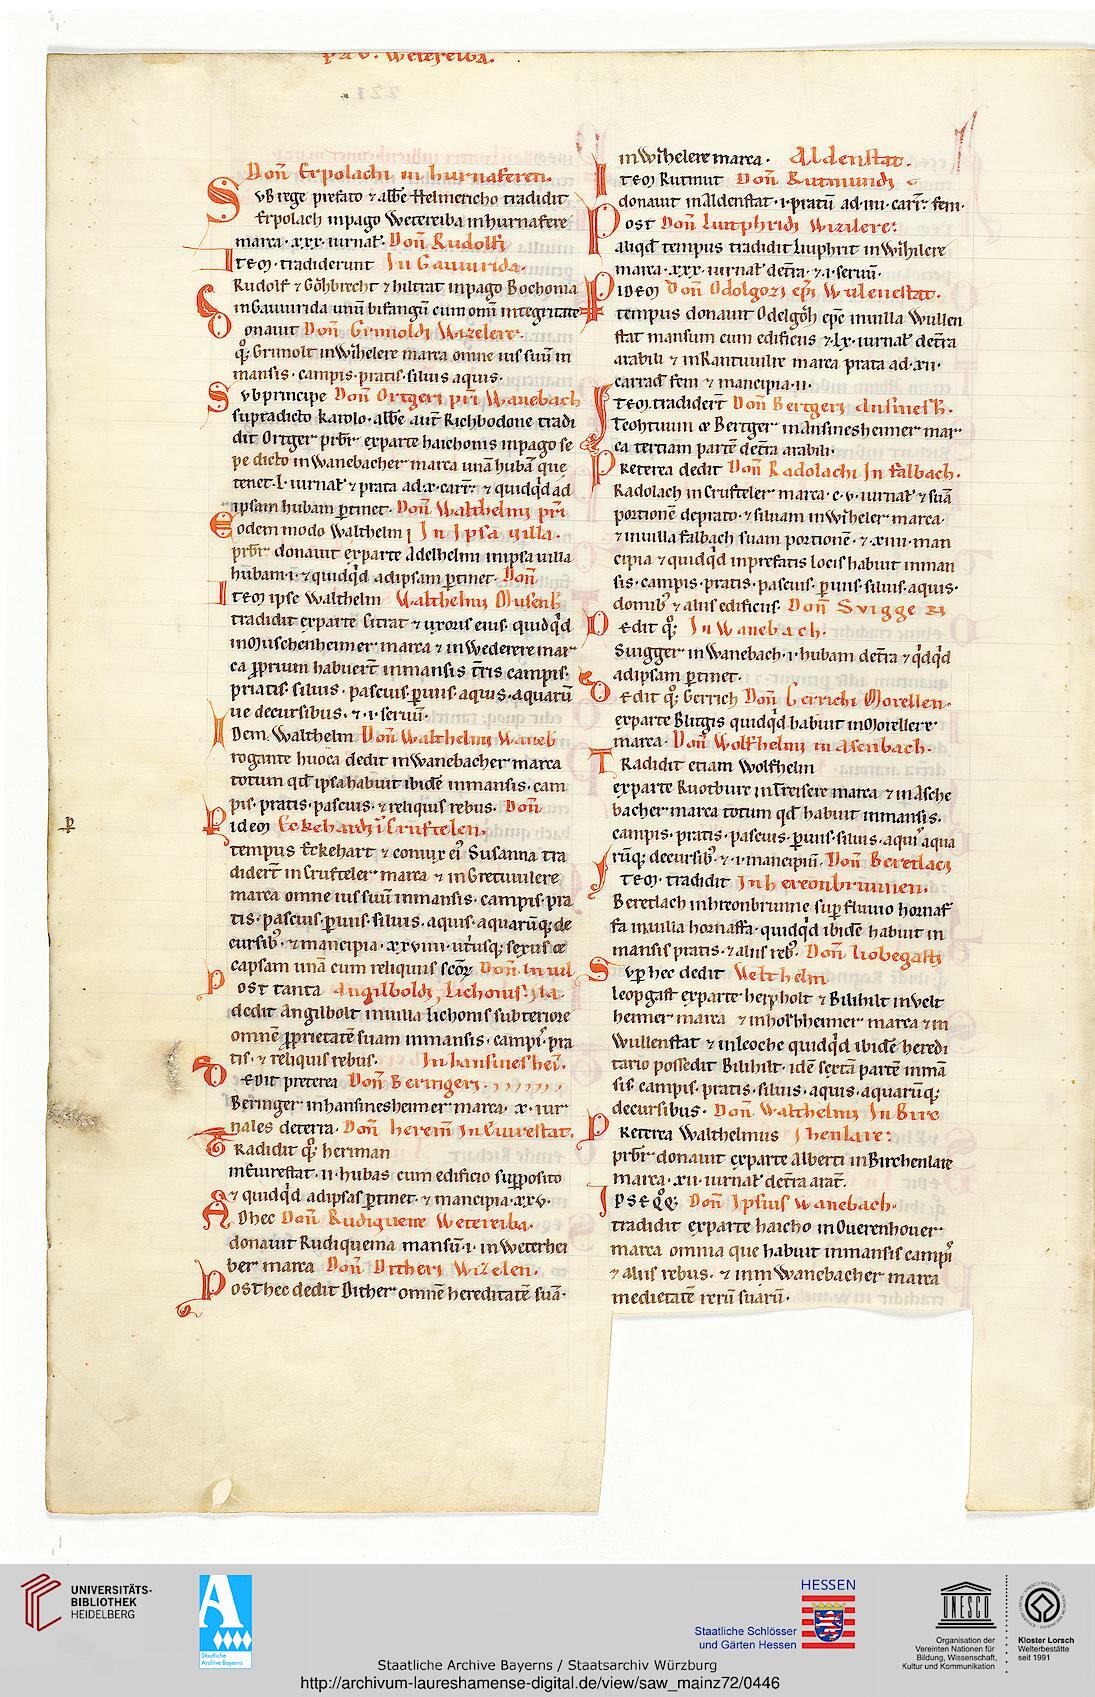 pag. Wetereiba.
Don̄ Erpolachi in hurnaferen.
Svb rege prefato ⁊ abb̄e Helmericho tradidit
Erpolach inpago Wetereiba inhurnafere
marca ·xxx· iurnal̄· Don̄ Rudolfi
Item· tradiderunt In Gauuirida·
Rudolf ⁊ Gōhbrecht ⁊ hiltrat inpago Bochonia
inGauuirida unū bifangū cum omī integritate
Donauit Don̄ Grimoldi Wizelere·
q̄; Grimolt inWihelere marca omne ius suū in
mansis· campis· pratis· siluis aquis·
Svb principe Don̄ Ortgeri pr̄i Wanebach
supradicto karolo· abb̄e aut̄ Richbodone tradi
dit Ortger prb̄r exparte haichonis inpago se
pe dicto inWanebacher marca unā hubā que
tenet·L· iurnal̄ ⁊ prata ad·x·carr̄· ⁊ quidqd̄ ad
ipsam hubam p̄tinet· Don̄ Walthelmi pr̄i
Eodem modo Walthelm In Ipsa uilla·
prb̄r donauit exparte Adelhelmi inipsa uilla
hubam·i· ⁊ quidqd̄ adipsam p̄tinet· Don̄
Item ipse Walthelm Walthelmi Musenh̄
tradidit exparte Sitrat ⁊ uxoris eius· quidqd̄
inMuschenheimer marca ⁊ inWederere mar
ca p̄prium habuer̄t inmansis t̄ris campis·
priatis· siluis· pascuis· p̄uiis· aquis· aquarū
ue decursibus· ⁊·i·seruū·
Idem Walthelm Don̄ Walthelmi Waneb̄
rogante huoca dedit inWanebacher marca
totum qd̄ ipsa habuit ibidē inmansis· cam
pis· pratis· pascuis· ⁊ reliq̄s rebus· Don̄
Pidem Eckehardi ī Cruftelen·
tempus Eckehart ⁊ coniux ei᾿ Susanna tra
didert̄ inCrufteler marca ⁊ inGretuuilere
marca omne ius suū inmansis· campis· pra
tis· pascuis· p̄uiis· siluis· aquis· aquarūq; de
cursib᾿· ⁊ mancipia·xxviiii· utriusq; sexus ⁊
capsam unā cum reliquiis scōꝝ Don̄ In uil
Post tanta Angilboldi, Lichonis· la·
dedit Angilbolt inuilla lichonis subteriore
omnē p̄prietatē suam inmansis· campis· pra
tis· ⁊ reliquis rebus· In hansineshei·
Dedit preterea Don̄ Beringeri·
Beringer inhansinesheimer marca· x· iur
nales deterra· Don̄ herim̄ In Euurestat·
Tradidit q̄; heriman
inEuurestat·ii·hubas cum edificio sup̄posito
⁊ quidqd̄ adipsas p̄tinet· ⁊ mancipia·xxv·
Adhec Don̄ Rudiguene Wetereiba·
donauit Rudiquema mansū·i· inWeterhei
ber marca Don̄ Ditheri Wizelen·
Posthec dedit Dither omnē hereditatē suā·
inWihelere marca· Aldenstat·
Item Rutmut Don̄ Rutmundi
donauit inAldenstat·i·pratū ad·iiii·carr̄· fem·
Post Don̄ Liutphridi Wizilere:
aliqd̄ tempus tradidit Liuphrit inWihilere
marca·xxx·iurnal̄ det̄ra·⁊·i·seruū·
Pidem Don̄ Odolgozi ep̄i Wulenestat·
tempus donauit Odelgōh ep̄c inuilla Wullen
stat mansum cum edificiis ⁊·Lx·iurnal̄ det̄ra
arabili ⁊ inRantuuilre marca prata ad·xii·
carrad̄ feni ⁊ mancipia·ii·
Item· tradidert̄ Don̄ Bertgeri Ansinesh̄·
Teohtuuin ⁊ Bertger inAnsinesheimer mar·
ca tertiam partē det̄ra arabili·
Preterea dedit Don̄ Radolachi In falbach·
Radolach inCrufteler marca·c·v·iurnal̄ ⁊ suā
portionē deprato·⁊ siluam inWiheler marca·
⁊ inuilla falbach suam portionē·⁊·xiiii·man
cipia ⁊ quidqd̄ inprefatis locis habuit inman
sis· campis· pratis· pascuis· p̄uiis· siluis· aquis·
domib᾿ ⁊ aliis edificiis· Don̄ Svigge ri
Dedit q̄; In Wanebach·
Suigger inWanebach·i·hubam det̄ra ⁊ qd̄qd̄
adipsam p̄tinet·
Dedit q̄; Gerrich Don̄ Gerrichi Morellen·
exparte Blitgis quidqd̄ habuit inMorellere·
marca· Don̄ Wolfhelmi in Asenbach·
Tradidit etiam Wolfhelm
exparte Ruotburc inTreisere marca ⁊ inAsche
bacher marca totum qd̄ habuit inmansis·
campis· pratis· pascuis· p̄uiis· siluis· aquis aqua
rūq; decursib᾿· ⁊·i·mancipiū· Don̄ Beretlaci
Item· tradidit In hereonbrunnen·
Beretlach inhreonbrunne sup̄ fluuio hornaf
fa inuilla hornaffa· quidqd̄ ibidē habuit in
mansis pratis·⁊ aliis reb᾿· Don̄ Liobegasti
Svp̄ hec dedit Welthelm
leopgast exparte herpholt ⁊ Bilihilt inWelt
heimer marca ⁊ inhorhheimer marca ⁊ in
Wullenstat ⁊ inleoche quidqd̄ ibidē heredi
tario possedit Bilihilt· idē sextā partē inmā
sis· campis· pratis· siluis· aquis· aquarūq;
decursibus· Don̄ Walthelmi In Bire
Preterea Walthelmus henlare:
prb̄r donauit exparte Alberti inBirchenlare
marca·xii·iurnal̄ det̄ra arat̄·
Ipse q̄q; Don̄ Ipsius Wanebach·
tradidit exparte haicho inOuerenhouer
marca omnia que habuit inmansis campis
⁊ aliis rebus·⁊ inin Wanebacher marca
medietatē rerū suarū·
UNIVERSITÄTS-
BIBLIOTHEK
HEIDELBERG
Staatliche
Archive Bayerns
HESSEN
Staatliche Schlösser
und Gärten Hessen
UNESCO
Organisation der
Vereinten Nationen für
Bildung, Wissenschaft,
Kultur und Kommunikation
Kloster Lorsch
Welterbestätte
seit 1991
Staatliche Archive Bayerns / Staatsarchiv Würzburg
http://archivum-laureshamense-digital.de/view/saw_mainz72/0446